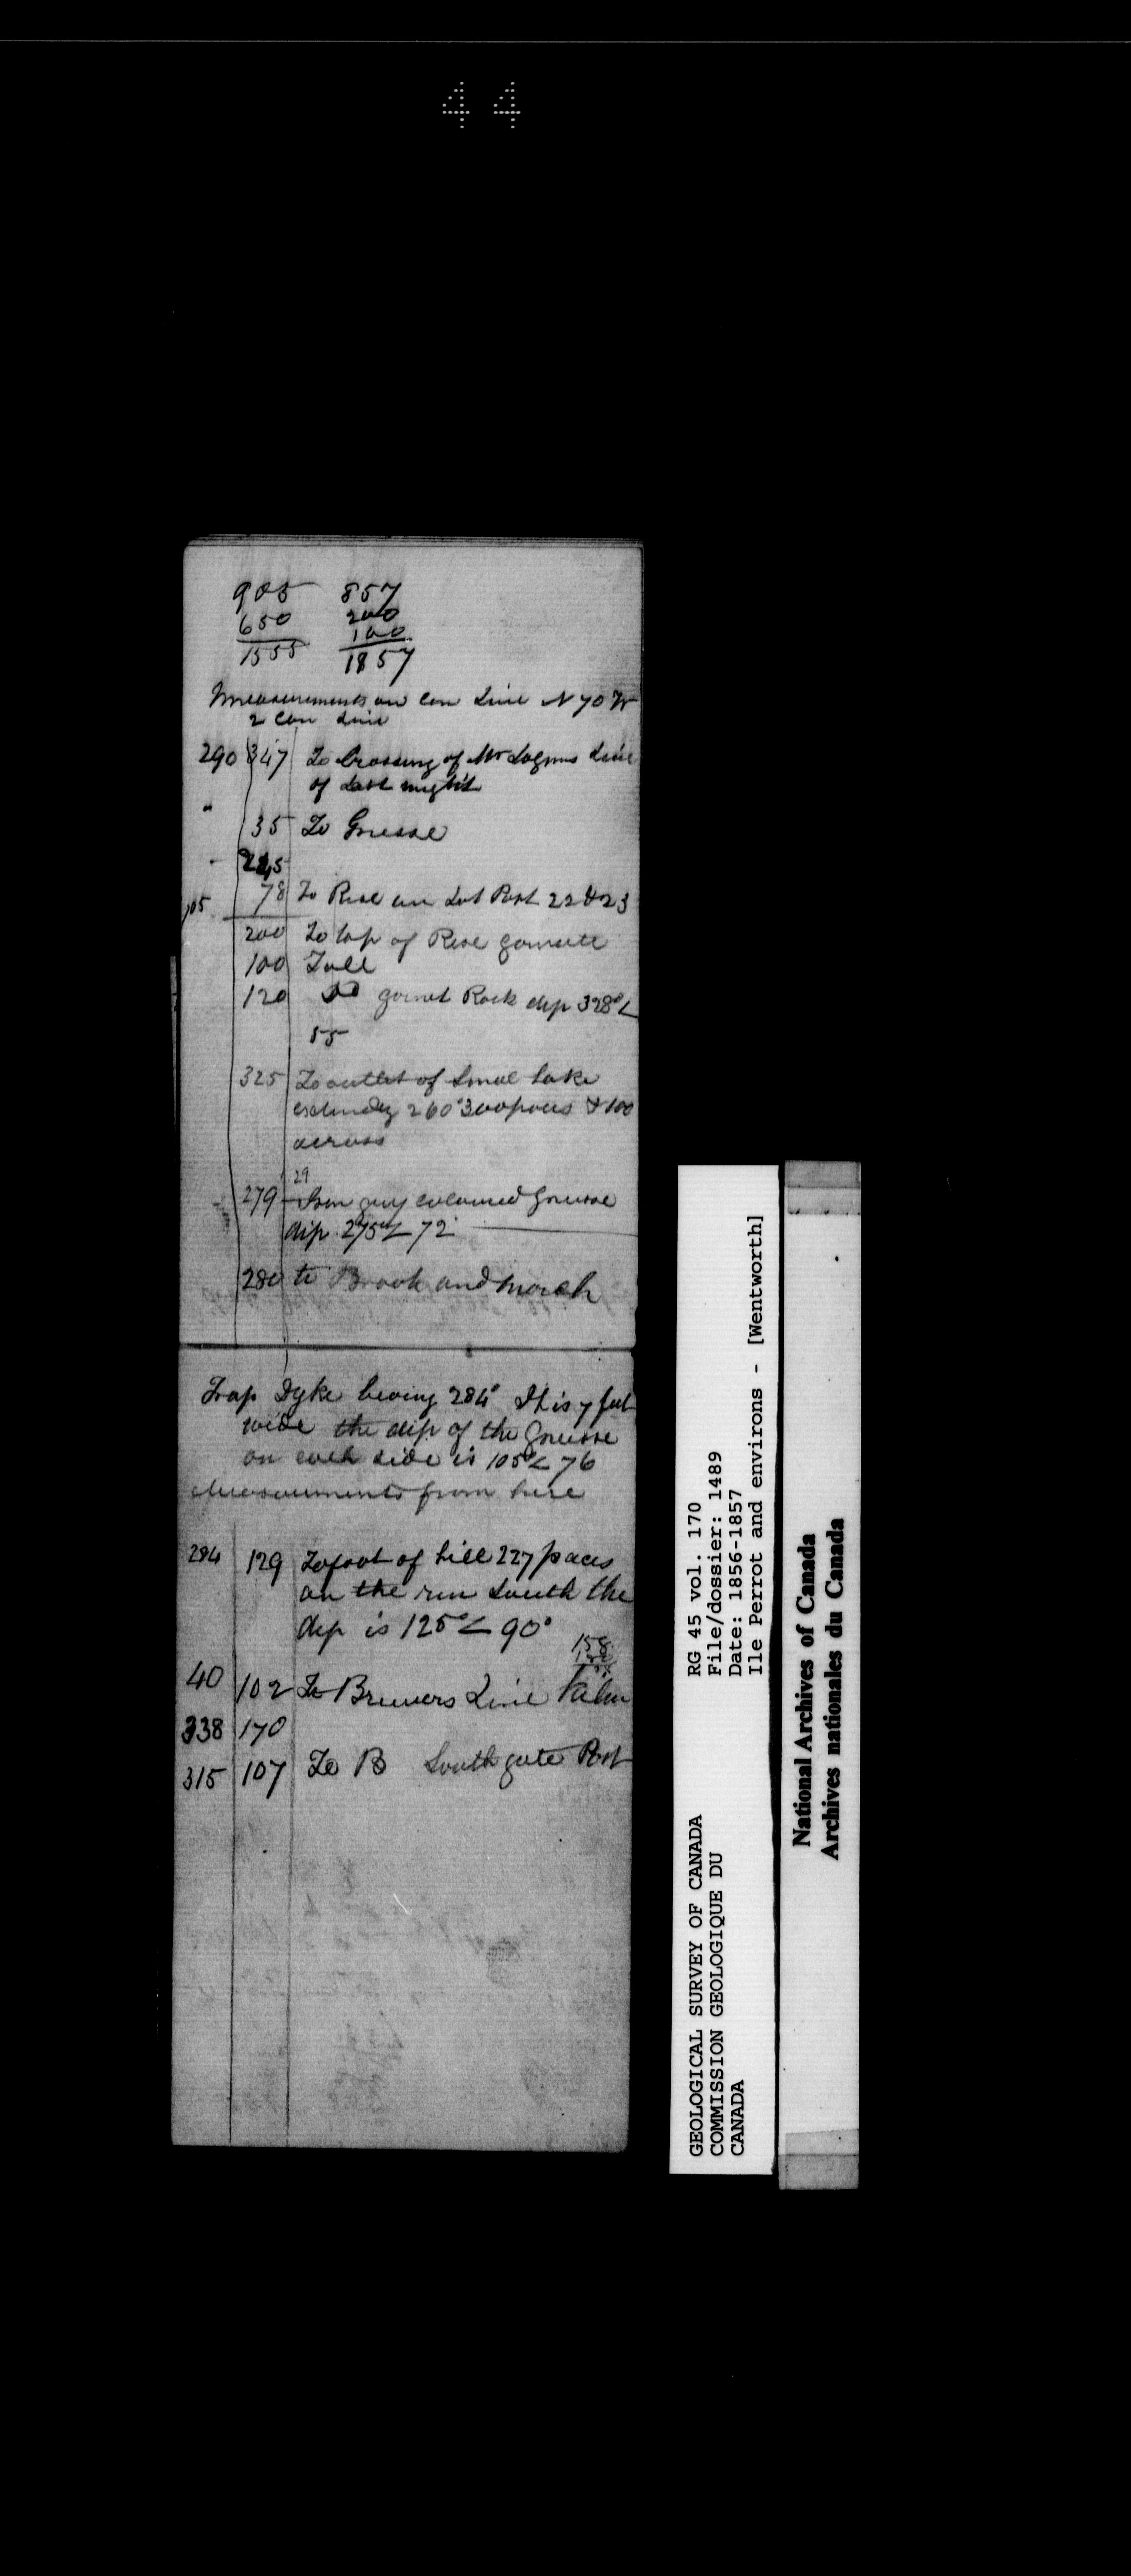 44
905 857
650 200
1555 100
1857
Measurements on Con Line N 70 W
2 Con Line
290 347 To Crossing of Mr Logans Line
of Last night
" 35 To Gneisse
78 To Rise on Lot Post 22 & 23
105
200 To top of Rise
100 Fall
120 Do garnet Rock dip 328°∠
55
325 To outlet of Smal Lake
260° 300 paces & 100
across
29
279 Iron grey coloured Gneisse
dip 275°∠ 72
280 to Brook and
Trap Dyke bering 284° It is 7 feet
wide the dip of the Gneisse
on each side is 105°∠ 76
Measurments from here
284 129 To foot of hill 227 paces
on the run South the
dip is 125°∠ 90°
158
40 102 To Bruwers Line
338 170
315 107 To B Southgate Post
GEOLOGICAL SURVEY OF CANADA
COMMISSION GEOLOGIQUE DU
CANADA
RG 45 vol. 170
File/dossier: 1489
Date: 1856-1857
Ile Perrot and environs - [Wentworth]
National Archives of Canada
Archives nationales du Canada